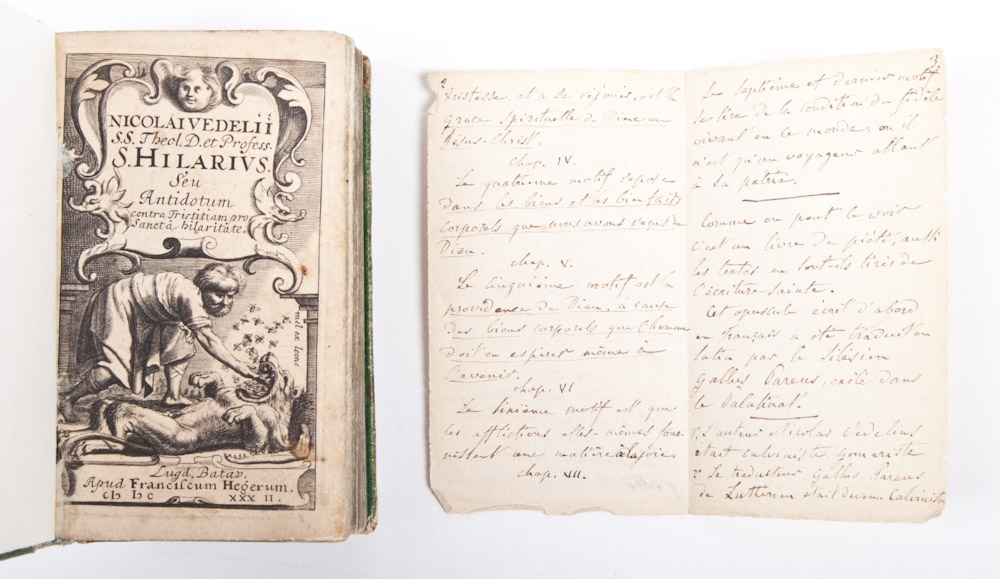 NICOLAI VEDELII
S.S. Theol. D. et Profess.
S. HILARIVS.
Seu
Antidotum
contra Tristitiam pro
Sanctâ hilaritate.
mel ex leone
Lugd. Batav.
Apud Franciscum Hegerum.
CIƆ IƆC XXXII.
tristesse, et à se réjouir, est la
grace Spirituelle de Dieu en
Jésus-Christ.
chap. IV.
Le quatrieme motif repose
dans les biens et les bienfaits
corporels que nous avons reçus de
Dieu.
chap. V.
Le cinquième motif est la
providence de Dieu, à cause
des biens corporels que l'homme
doit en espérer même à
l'avenir.
chap. VI
Le sixième motif est que
les afflictions elles-mêmes four-
nissent une matière à la joie.
chap. VII.
3
Le septième et dernier motif
se tire de la condition du fidèle
vivant en le monde, où il
n'est qu'un voyageur allant
à sa patrie.
Comme on peut le voir
c'est un livre de piété, aussi
les textes en sont-ils tirés de
l'écriture sainte.
Cet opuscule écrit d'abord
en français a été traduit en
latin par le Silésien
Gallus Pareus, exilé dans
le Palatinat.
L'auteur Nicolas Vedelius
était calviniste, Gomariste
Le traducteur Gallus Pareus
de Luthérien était devenu Calviniste